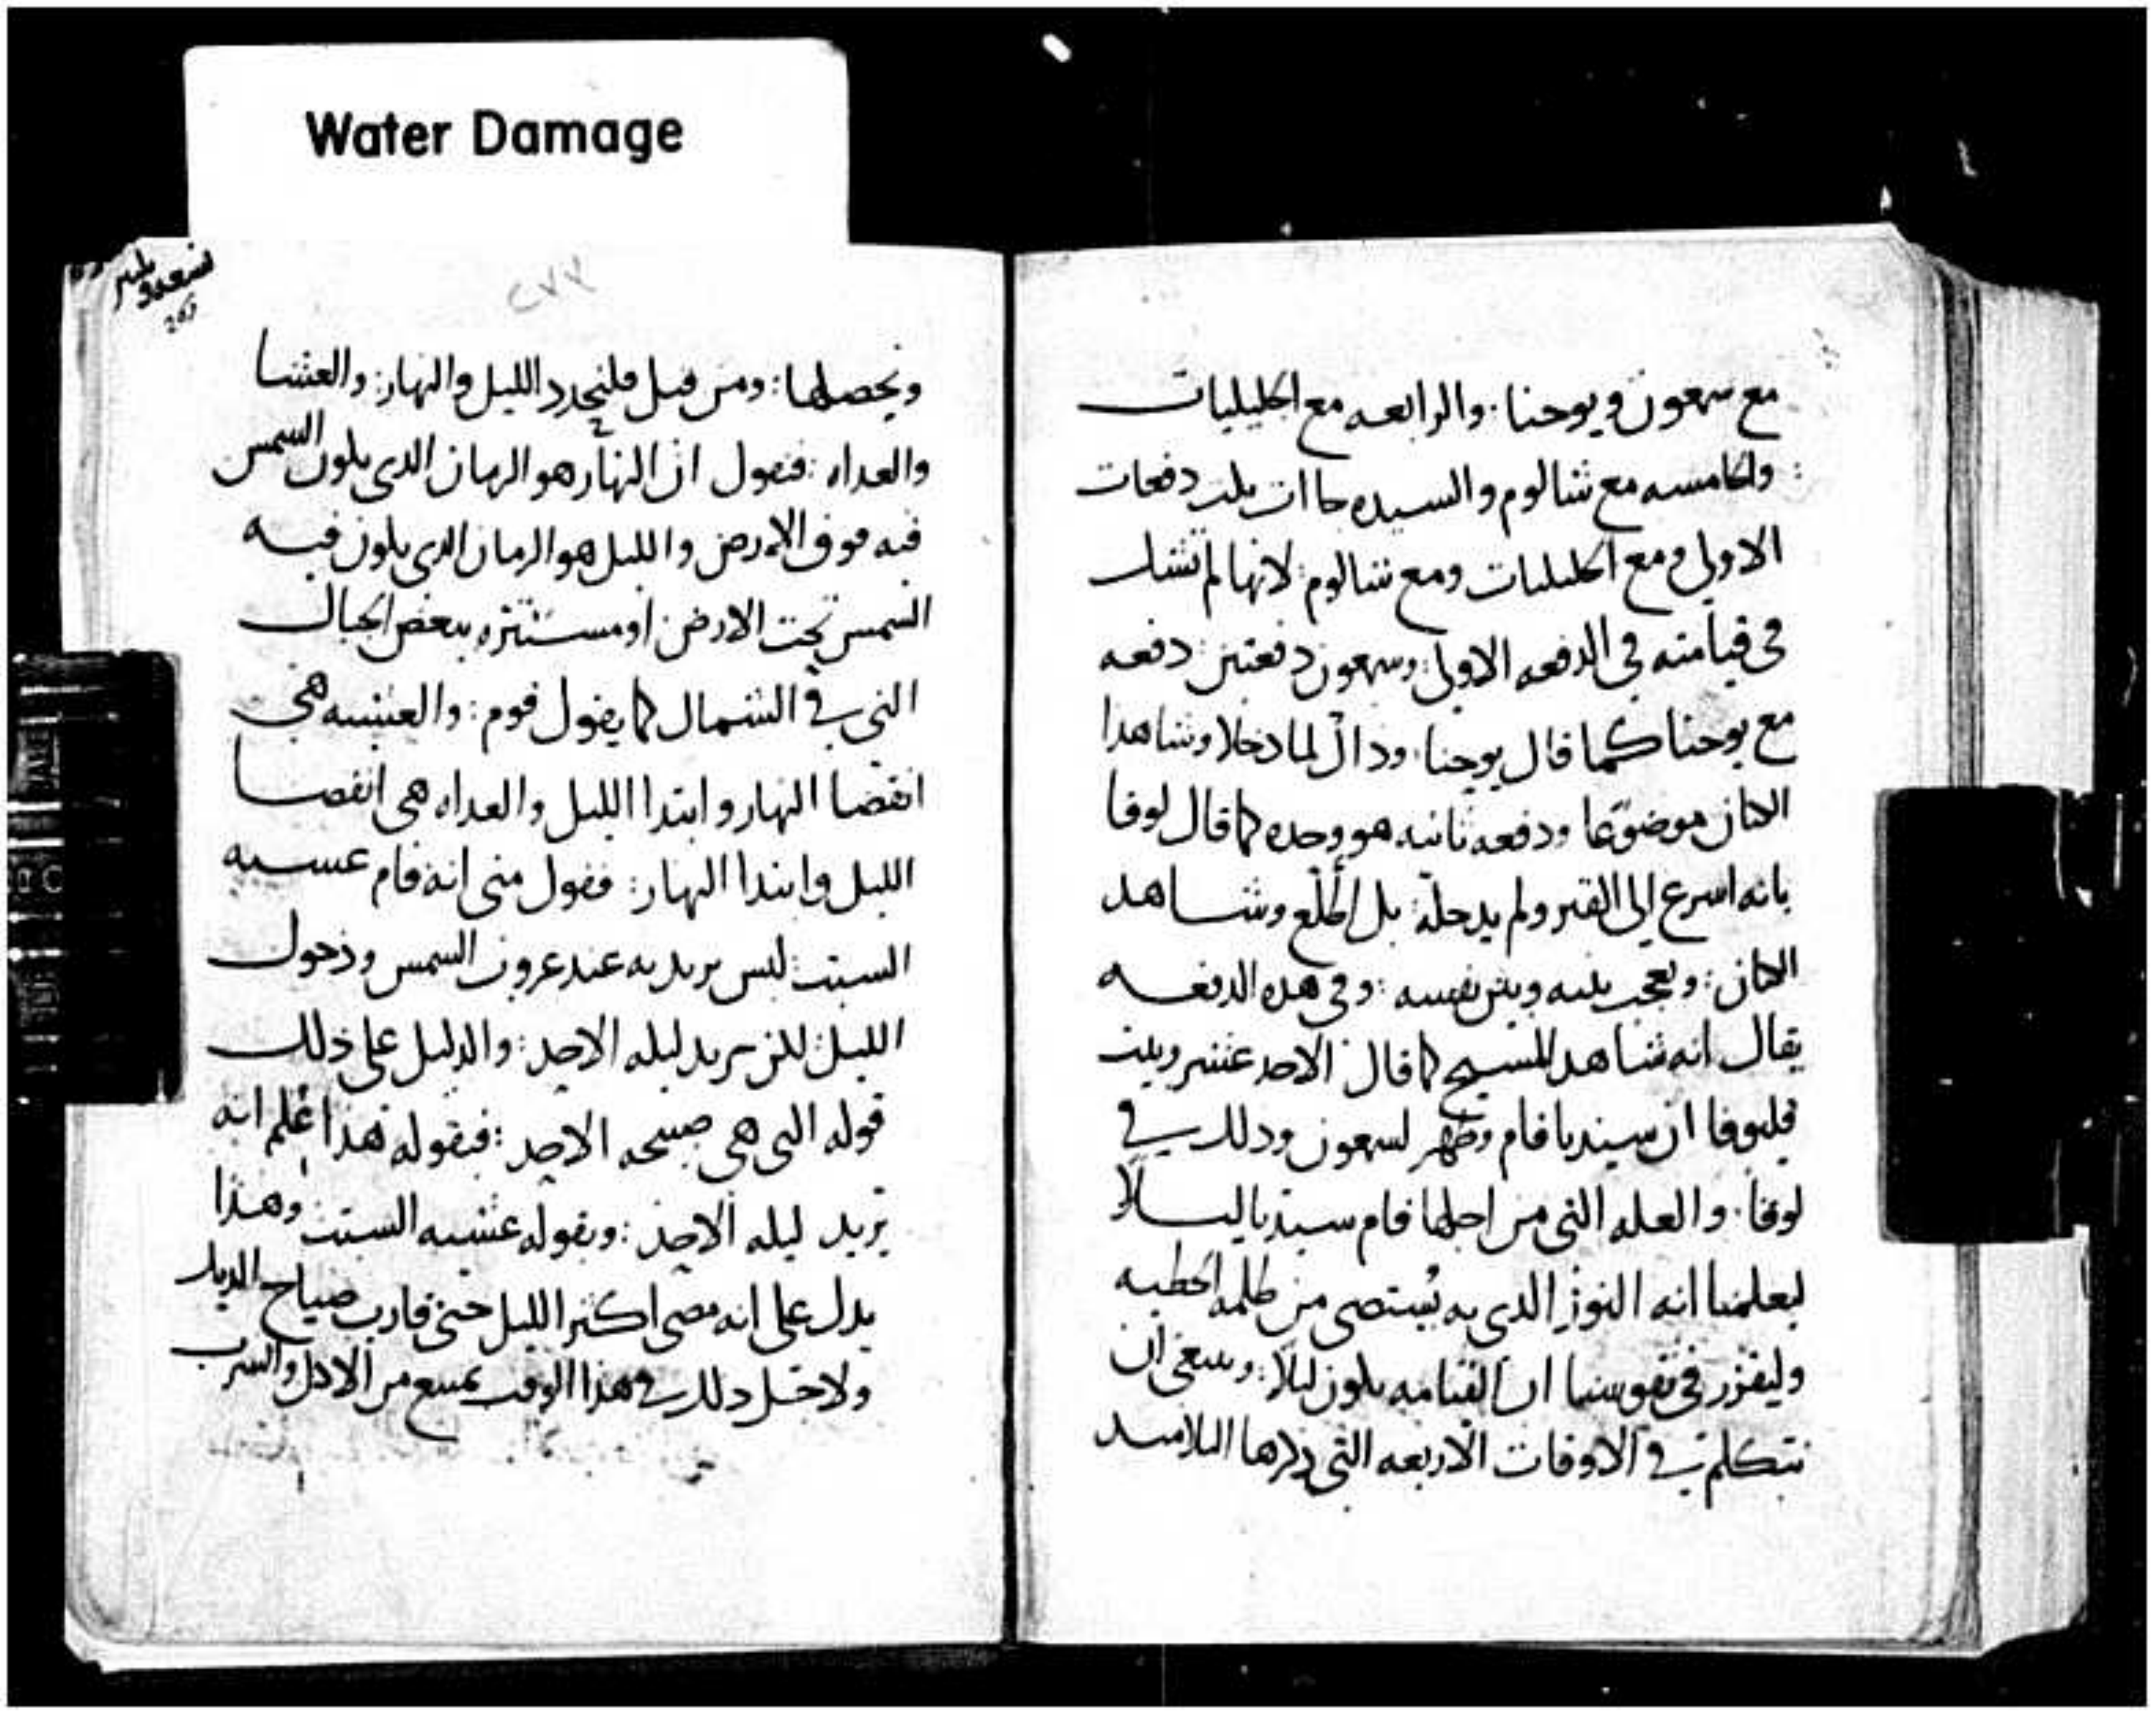 Water Damage
مع سمعون ويوحنا. والرابعه مع الجليليات
والخامسه مع شالوم والسيده جاات ثلث دفعات
الاولى ومع الجليليات ومع شالوم: لانها لم تشك
في قيامته في الدفعه الاولى: وسمعون دفعتين: دفعه
مع يوحنا كما قال يوحنا. وذاك لما دخلا وشاهدا
الكتان موضوعا ودفعه ثانيه هو وحده كما قال لوقا
بانه اسرع الى القبر ولم يدخله: بل اطلع وشاهد
الكتان: وتعجب بينه وبين نفسه: وفي هذه الدفعه
يقال انه شاهد المسيح كما قال الاحد عشر وبيت
قليوفا ان سيدنا قام وظهر لسمعون وذلك في
لوقا. والعله التي من اجلها قام سيدنا ليلا
ليعلمنا انه النور الذي به يستضى من ظلمه الخطيه
وليقرر في نفوسنا ان القيامه يكون ليلا: وينبغي ان
نتكلم في الاوقات الاربعه التي ذكرها التلاميد
٢٧٧
263
ونحصلها: ومن قبل فلنحدد الليل والنهار: والعشا
والغداه: فنقول ان النهار هو الزمان الذي يكون الشمس
فيه فوق الارض والليل هو الزمان الذي يكون فيه
الشمس تحت الارض او مستتره ببعض الجبال
التي في الشمال كما يقول قوم: والعشيه هي
انقضا النهار وابتدا الليل والغداه هي انقضا
الليل وابتدا النهار: فقول متى انه قام عشيه
السبت: ليس يريد به عند غروب الشمس ودخول
الليل: لكن يريد ليله الاحد: والدليل على ذلك
قوله التي هي صبيحه الاحد: فبقوله هذا اعلم انه
يريد ليله الاحد: وبقوله عشيه السبت وهذا
يدل على انه مضى اكثر الليل حتى قارب صياح الديك
ولاجل ذلك في هذا الوقت نمنع من الاكل والشرب